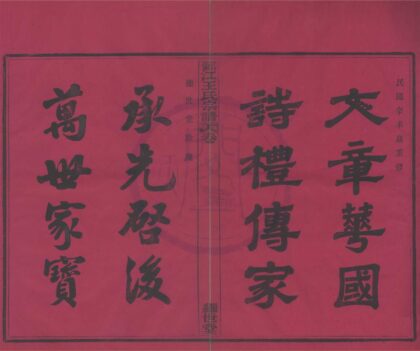 民國辛未歲重修
文章華國
詩禮傳家
王氏宗譜
卷
世堂
承先啓後
萬世家寶